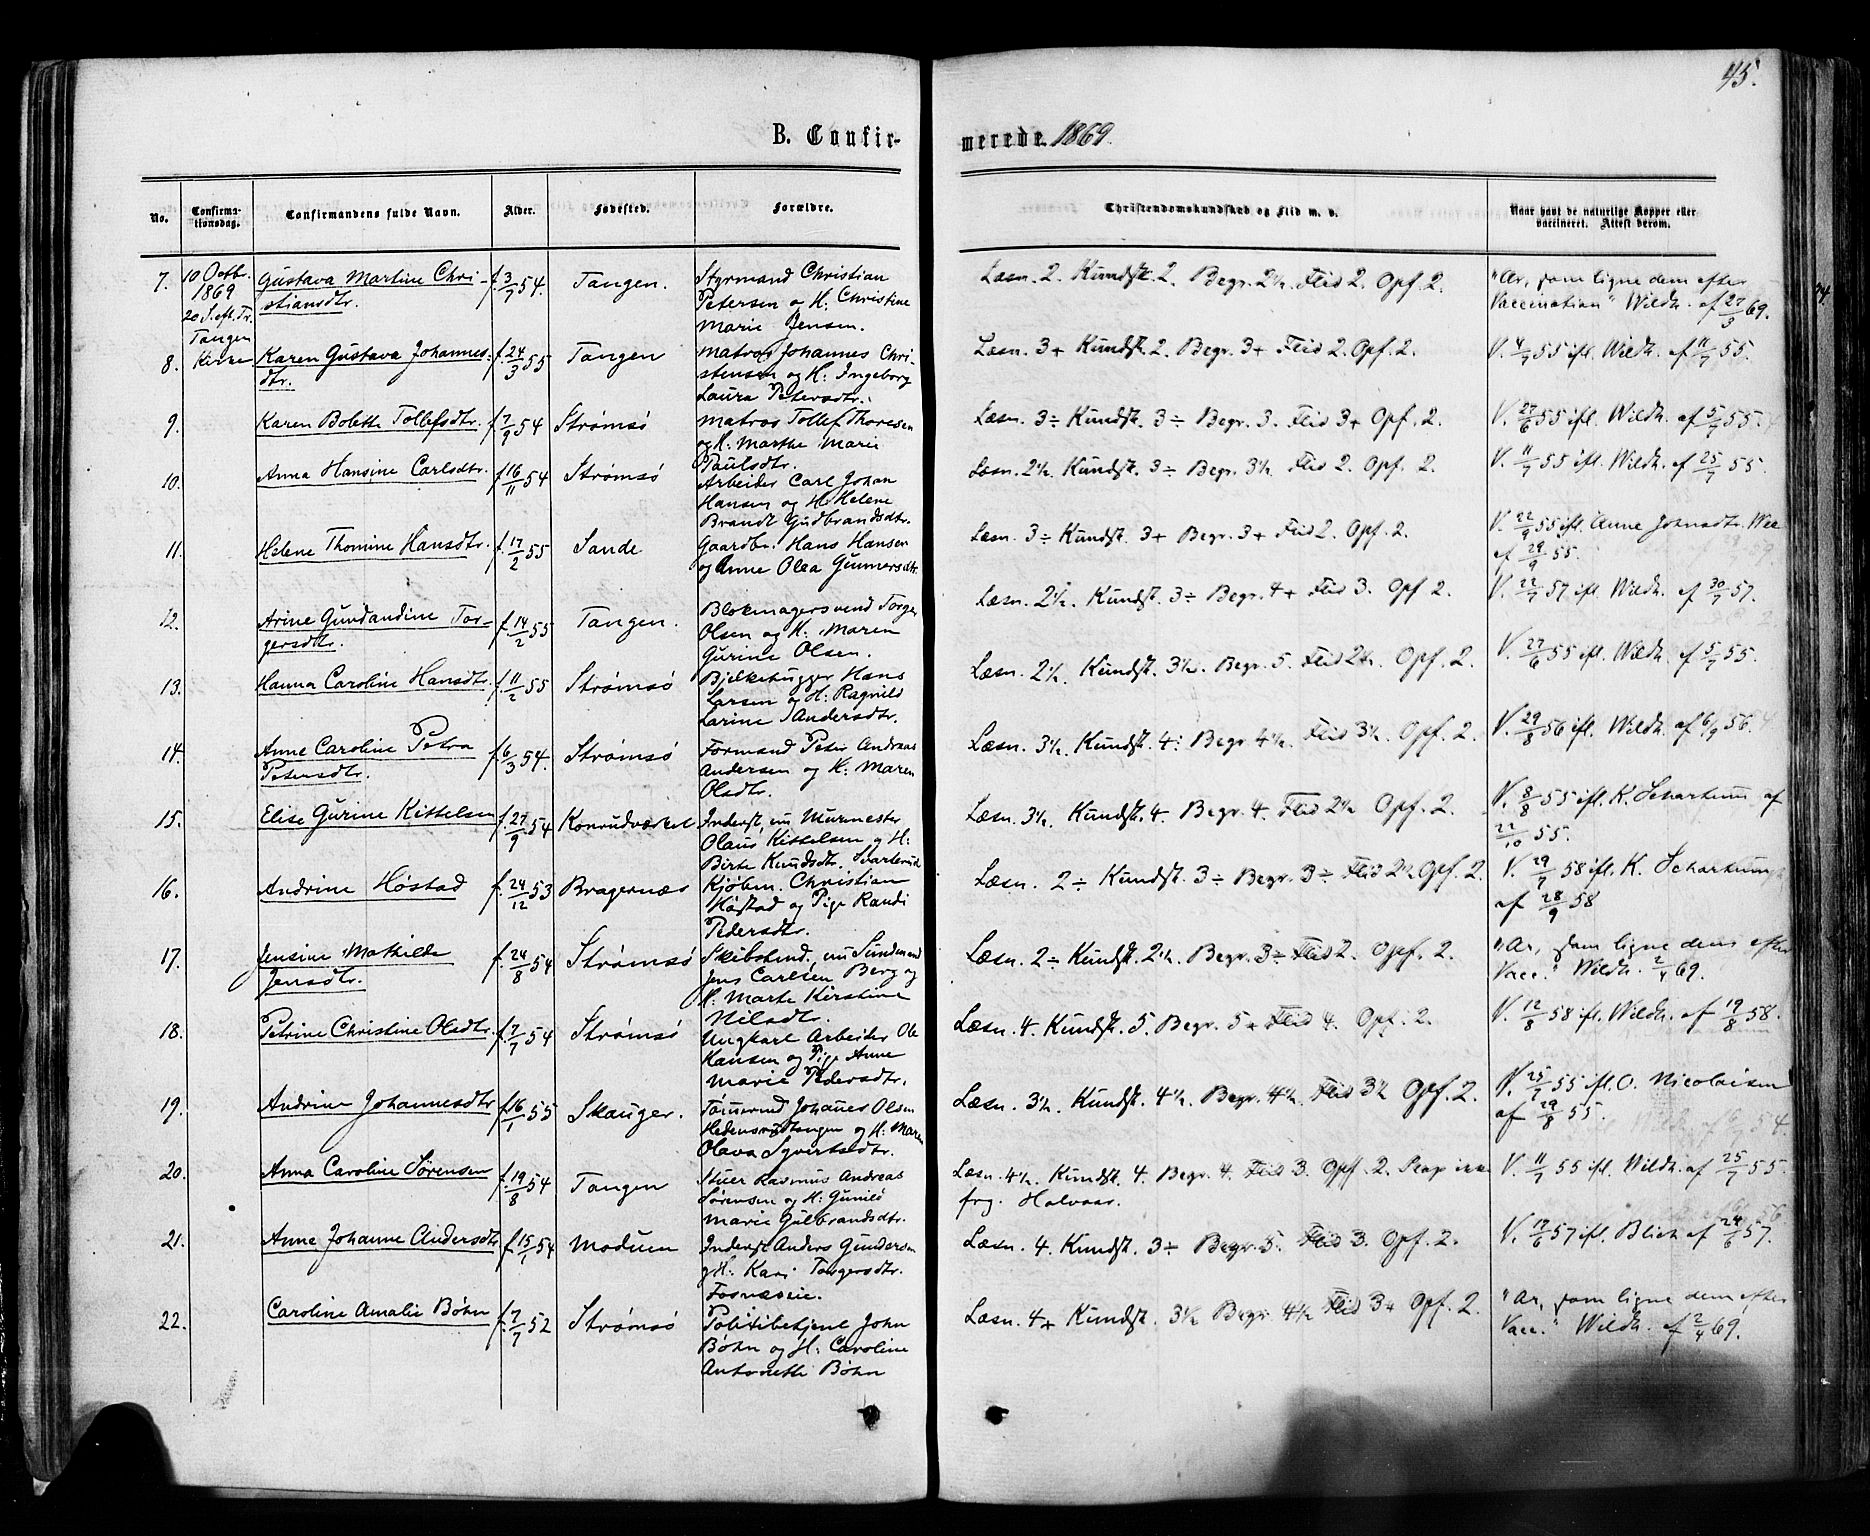 45.
B. Confirmerede. 1869.
No. Confirmationsdag. Confirmandens fulde Navn. Alder. Fødested. Forældre. Christendomskundskab og Flid m. v. Naar havt de naturlige Kopper eller vaccineret. Attest derom.
7. 10 Octbr. 1869 20 S. eft. Tr. Tangen Kirke
Gustava Martine Chri-
stiansdtr.
f. 3/7 54. Tangen.
Styrmand Christian
Petersen og H. Christine
Marie Jensen.
Læsn. 2. Kundsk. 2. Begr. 2½. Flid 2. Opf. 2.
"Ar, som ligne dem efter
Vaccination" Wildh. af 27/3 69.
8. Karen Gustava Johannes-
dtr.
f. 24/3 55 Tangen
Matros Johannes Chri-
stensen og H: Ingeborg
Laura Petersdtr.
Læsn. 3+ Kundsk. 2. Begr. 3+ Flid 2. Opf. 2.
V. 4/7 55 ifl. Wildh. af 11/7 55.
9. Karen Bolette Tollefsdtr. f. 7/9 54 Strømsø
Matros Tollef Thoresen
og H. Marthe Marie
Paulsdtr.
Læsn. 3÷ Kundsk. 3÷ Begr. 3. Flid 3+ Opf. 2.
V. 27/6 55 ifl. Wildh. af 5/7 55.
10. Anna Hansine Carlsdtr. f. 16/11 54 Strømsø
Arbeider Carl Johan
Hansen og H. Helene
Brandt Gudbrandsdtr.
Læsn. 2½. Kundsk. 3÷ Begr. 3½ Flid 2. Opf. 2.
V. 11/7 55 ifl. Wildh. af 25/7 55.
11. Helene Thomine Hansdtr. f. 17/2 55 Sande
Gaardbr. Hans Hansen
og Anne Olea Gunnersdtr.
Læsn. 3÷ Kundsk. 3+ Begr. 3+ Flid 2. Opf. 2.
V. 22/9 55 ifl. Anne Johnsdtr.
af 29/9 55.
12. Arine Gundandine Tor-
gersdtr.
f. 14/2 55 Tangen.
Blokmagersvend Torger
Olsen og H. Maren
Gurine Olsen.
Læsn. 2½. Kundsk. 3÷ Begr. 4+ Flid 3. Opf. 2.
V. 22/7 57 ifl. Wildh. af 30/7 57.
13. Hanna Caroline Hansdtr. f. 11/2 55 Strømsø
Bjelkehugger Hans
Larsen og H: Ragnild
Larine Andersdtr.
Læsn. 2½. Kundsk. 3½. Begr. 5. Flid 2+. Opf. 2.
V. 27/6 55 ifl. Wildh. af 5/7 55.
14. Anne Caroline Petra
Petersdtr.
f. 6/3 54. Strømsø
Formand Peter Andreas
Andersen og H: Maren
Olsdtr.
Læsn. 3½. Kundsk. 4÷ Begr. 4½. Flid 3½. Opf. 2.
V. 29/8 56 ifl. Wildh. af 6/9 56.
15. Elise Gurine Kittelsen f. 27/9 54 Konrudværket
Inderst, nu Murmester
Olaus Kittelsen og H:
Birte Knudsdtr. Svarterud
Læsn. 3½. Kundsk. 4. Begr. 4. Flid 2½ Opf. 2.
V. 8/8 55 ifl. K. Scharkum af
22/10 55.
16. Andrine Høstad f. 24/12 53 Bragernæs
Kjøbm. Christian
Høstad og Pige Randi
Pedersdtr.
Læsn. 2÷ Kundsk. 3÷ Begr. 3÷ Flid 2½ Opf. 2.
V. 29/7 58 ifl. K. Scharkum
af 28/9 58
17. Jensine Mathilde
Jensdtr.
f. 24/8 54 Strømsø
Skibstmd. nu Sundmand
Jens Carlsen Berg og
H. Marte Kirstine
Nilsdtr.
Læsn. 2÷ Kundsk. 2½. Begr. 3÷ Flid 2. Opf. 2.
"Ar, som ligne dem efter
Vacc." Wildh. 2/4 69.
18. Petrine Christine Olsdtr. f. 7/7 54 Strømsø
Ungkarl Arbeider Ole
Hansen og Pige Anne
Marie Pedersdtr.
Læsn. 4. Kundsk. 5. Begr. 5+ Flid 4. Opf. 2.
V. 12/8 58 ifl. Wildh. af 19/8 58.
19. Andrine Johannesdtr f. 16/1 55 Skauger.
Tømmermd Johannes Olsen
Hedensrudtangen og H: Maren
Olava Syvertsdtr.
Læsn. 3½. Kundsk. 4½. Begr. 4½. Flid 3½ Opf. 2.
V. 25/7 55 ifl. O. Nicolaisen
af 29/8 55.
20. Anna Caroline Sørensen f. 19/8 54 Tangen
Stuer Rasmus Andreas
Sørensen og H: Gunild
Marie Gulbrandsdtr.
Læsn. 4½. Kundsk. 4. Begr. 4. Flid 3. Opf. 2.
V. 11/7 55 ifl. Wildh. af 25/7 55.
21. Anne Johanne Andersdtr f. 15/1 54 Moduen
Inderst Anders Gundersen
og H: Kari Torgersdtr.
Fosnæseie.
Læsn. 4. Kundsk. 3÷ Begr. 5. Flid 3. Opf. 2.
V. 17/6 57 ifl. Blich af 24/6 57.
22. Caroline Amalie Bøhn f. 7/7 52 Strømsø
Politibetjent John
Bøhn og H: Caroline
Antonette Bøhn
Læsn. 4+ Kundsk. 3½ Begr. 4½ Flid 3+ Opf. 2.
"Ar, som ligne dem efter
Vacc." Wildh. af 2/4 69.